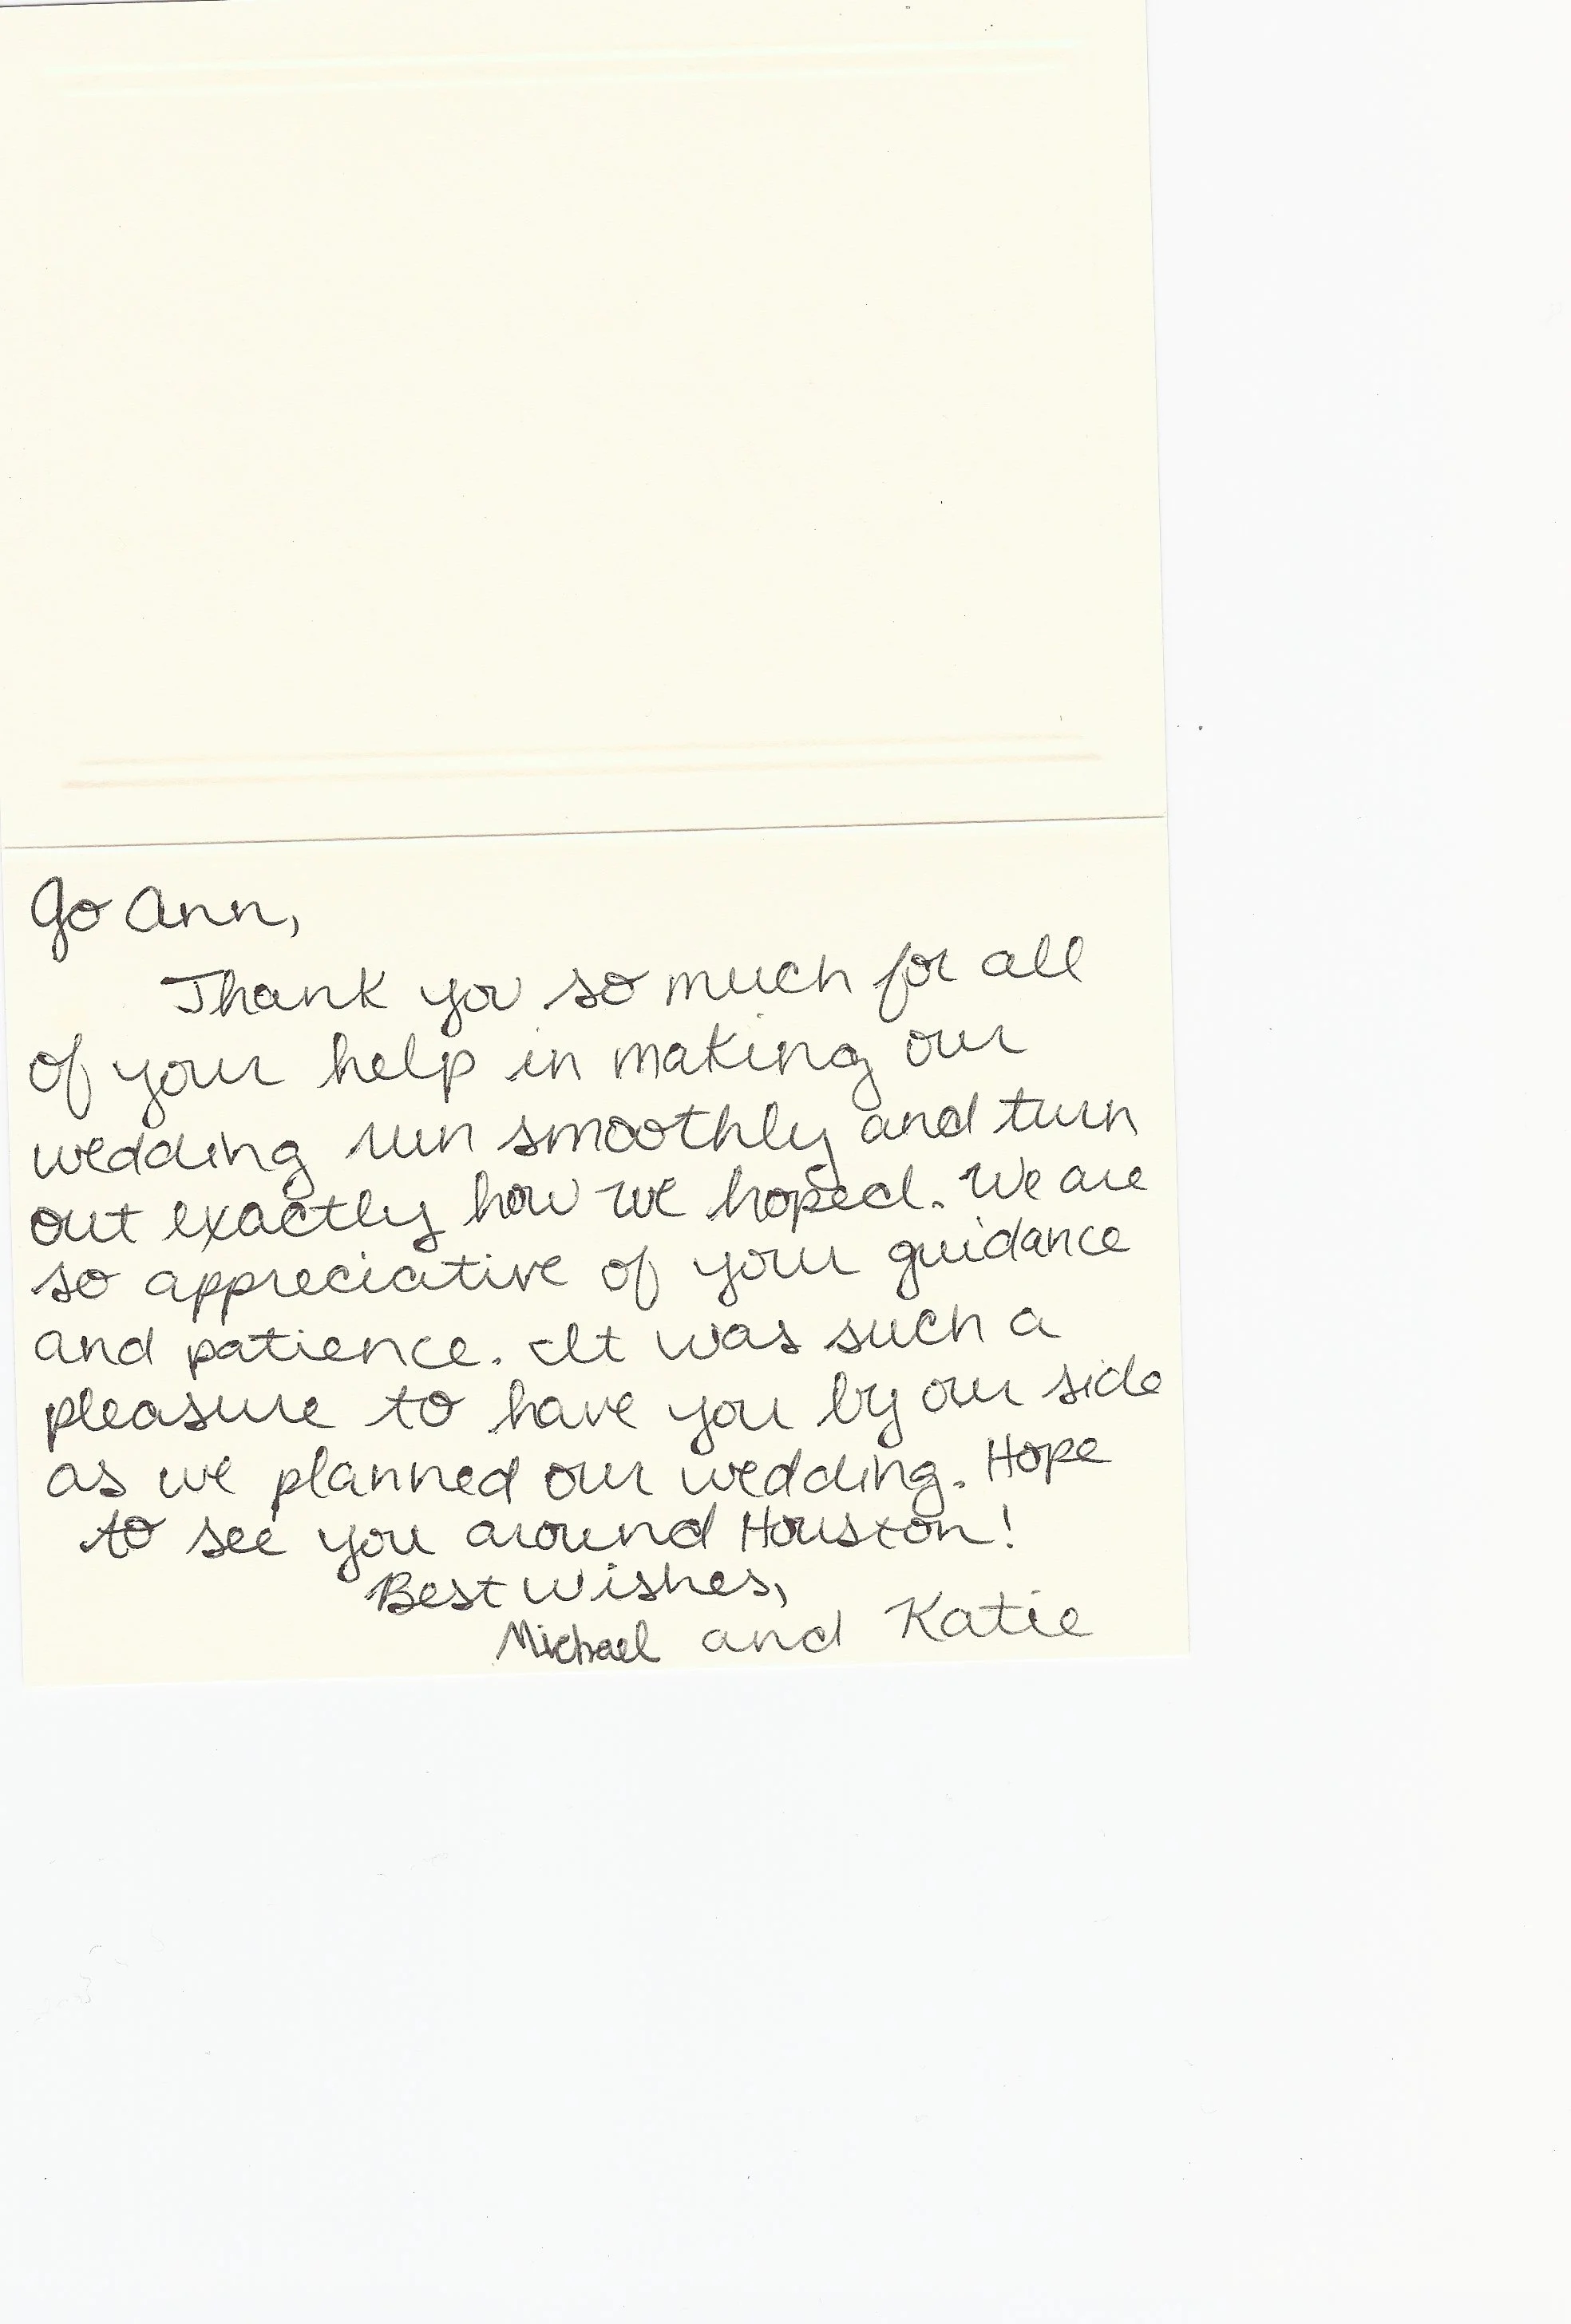 Jo Ann,
Thank you so much for all
of your help in making our
wedding run smoothly and turn
out exactly how we hoped. We are
so appreciative of your guidance
and patience. It was such a
pleasure to have you by our side
as we planned our wedding. Hope
to see you around Houston!
Best Wishes,
Michael and Katie